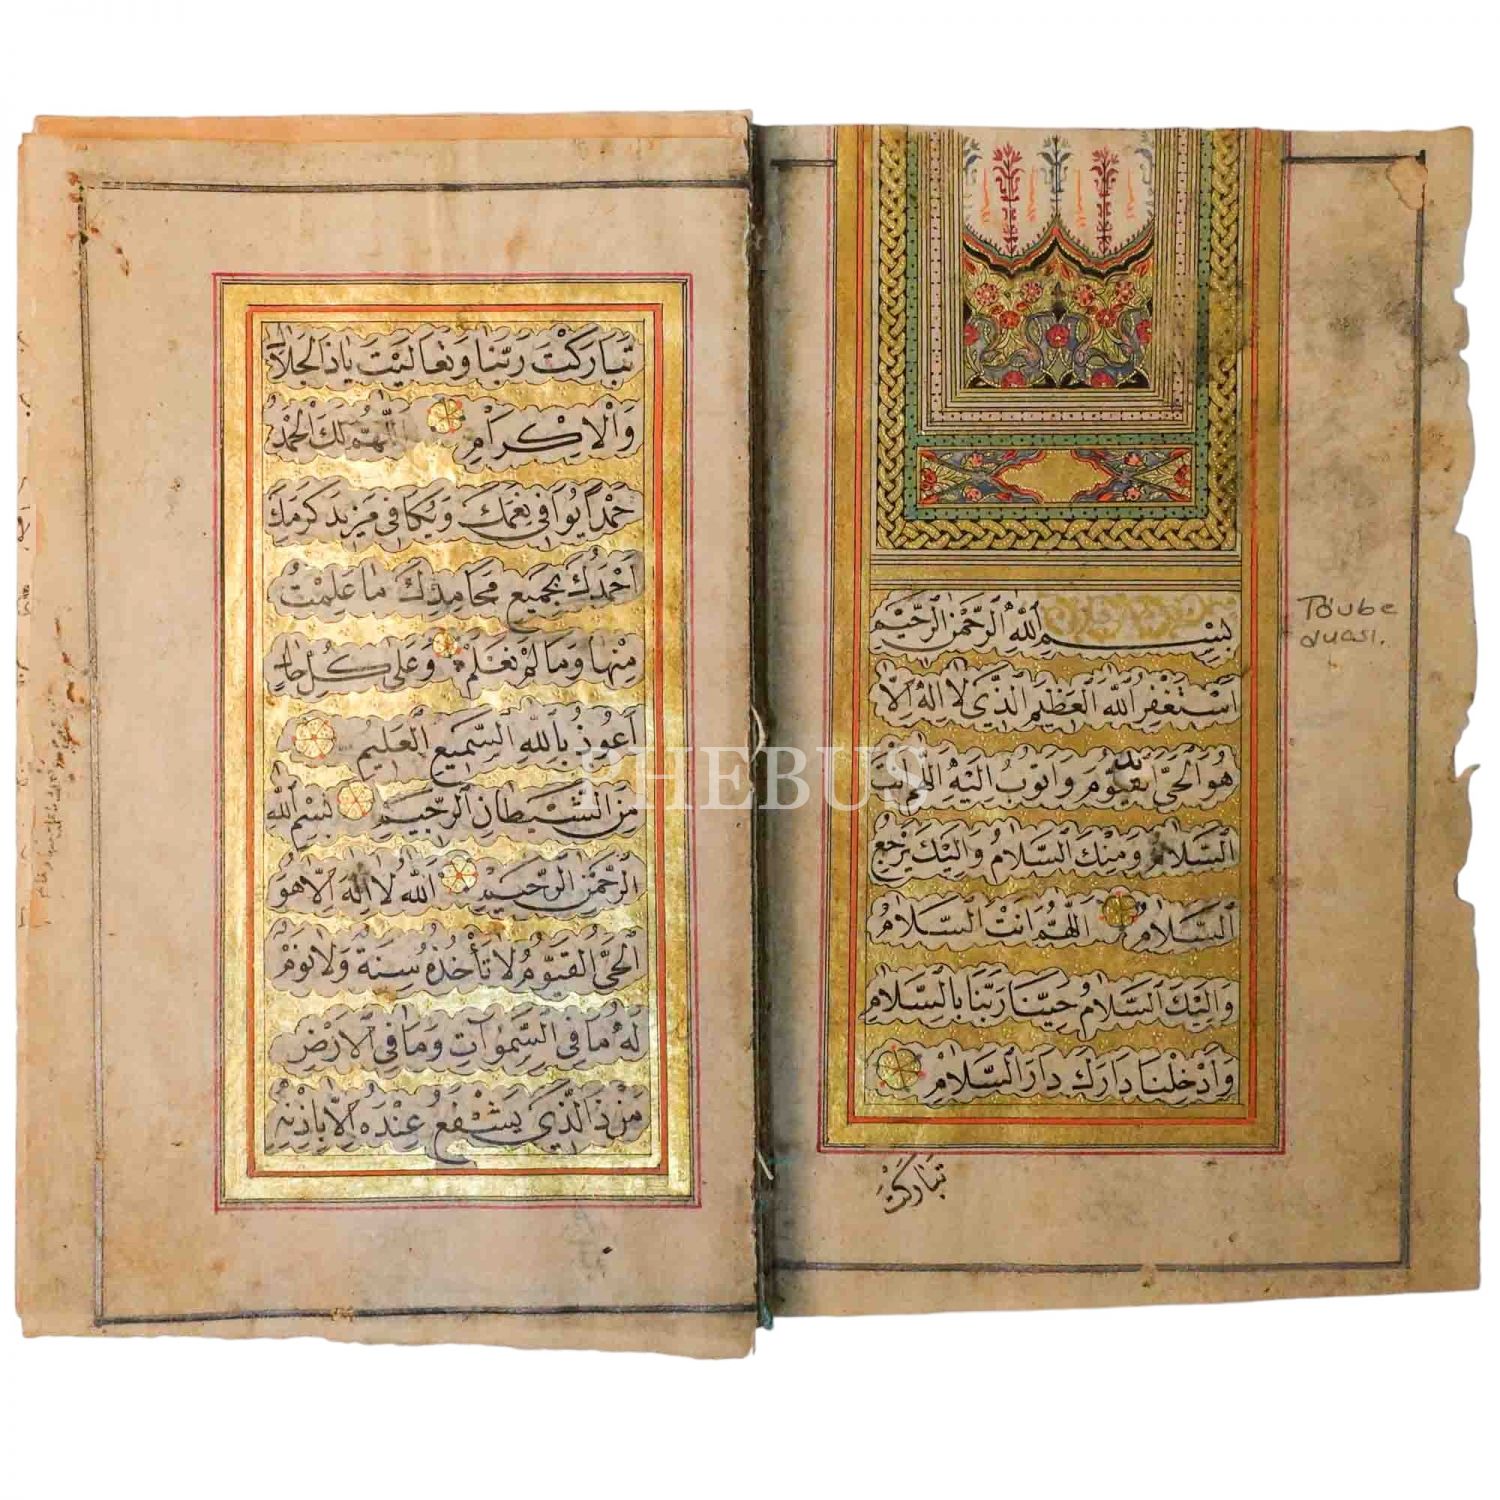 بِسْمِ اللّٰهِ الرَّحْمٰنِ الرَّحِيْمِ
اَسْتَغْفِرُ اللّٰهَ الْعَظِيْمَ الَّذِيْ لَا اِلٰهَ اِلَّا
هُوَ الْحَيُّ الْقَيُّوْمُ وَاَتُوْبُ اِلَيْهِ اَللّٰهُمَّ اَنْتَ
السَّلَامُ وَمِنْكَ السَّلَامُ وَاِلَيْكَ يَرْجِعُ
السَّلَامُ اَللّٰهُمَّ اَنْتَ السَّلَامُ
وَاِلَيْكَ السَّلَامُ حَيِّنَا رَبَّنَا بِالسَّلَامِ
وَاَدْخِلْنَا دَارَكَ دَارَ السَّلَامِ
تَبَارَكْتَ
Tövbe
duası.
تَبَارَكْتَ رَبَّنَا وَتَعَالَيْتَ يَاذَالْجَلَالِ
وَالْاِكْرَامِ اَللّٰهُمَّ لَكَ الْحَمْدُ
حَمْدًا يُوَافِيْ نِعَمَكَ وَيُكَافِيْ مَزِيْدَ كَرَمِكَ
اَحْمَدُكَ بِجَمِيْعِ مَحَامِدِكَ مَا عَلِمْتُ
مِنْهَا وَمَا لَمْ نَعْلَمْ وَعَلٰى كُلِّ حَالٍ
اَعُوْذُ بِاللّٰهِ السَّمِيْعِ الْعَلِيْمِ
مِنَ الشَّيْطَانِ الرَّجِيْمِ بِسْمِ اللّٰهِ
الرَّحْمٰنِ الرَّحِيْمِ اَللّٰهُ لَا اِلٰهَ اِلَّا هُوَ
الْحَيُّ الْقَيُّوْمُ لَا تَأْخُذُهُ سِنَةٌ وَلَا نَوْمٌ
لَهُ مَا فِي السَّمٰوَاتِ وَمَا فِي الْاَرْضِ
مَنْ ذَا الَّذِيْ يَشْفَعُ عِنْدَهُ اِلَّا بِاِذْنِهِ
PHEBUS